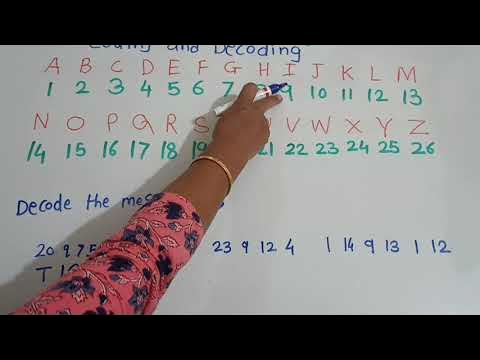 and Decoding
A B C D E F G H I J K L M
1 2 3 4 5 6 7 8 9 10 11 12 13
N O P Q R S V W X Y Z
14 15 16 17 18 19 21 22 23 24 25 26
Decode the
20 9 7 5 23 9 12 4 1 14 9 13 1 12
T I G